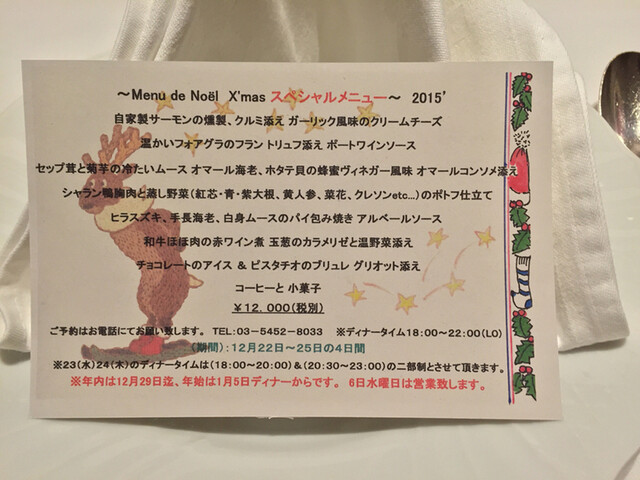 ～Menu de Noël X'mas スペシャルメニュー～ 2015'
自家製サーモンの燻製、クルミ添え ガーリック風味のクリームチーズ
温かいフォアグラのフラン トリュフ添え ポートワインソース
セップ茸と菊芋の冷たいムース オマール海老、ホタテ貝の蜂蜜ヴィネガー風味 オマールコンソメ添え
シャラン鴨胸肉と蒸し野菜（紅芯・青・紫大根、黄人参、菜花、クレソンetc...）のポトフ仕立て
ヒラスズキ、手長海老、白身ムースのパイ包み焼き アルベールソース
和牛ほほ肉の赤ワイン煮 玉葱のカラメリゼと温野菜添え
チョコレートのアイス & ピスタチオのブリュレ グリオット添え
コーヒーと 小菓子
￥12,000（税別）
ご予約はお電話にてお願い致します。 TEL：03-5452-8033 ※ディナータイム18：00～22：00（LO）
（期間）：12月22日～25日の4日間
※23（水）24（木）のディナータイムは（18：00～20：00）＆（20：30～23：00）の二部制とさせて頂きます。
※年内は12月29日迄、年始は1月5日ディナーからです。 6日水曜日は営業致します。